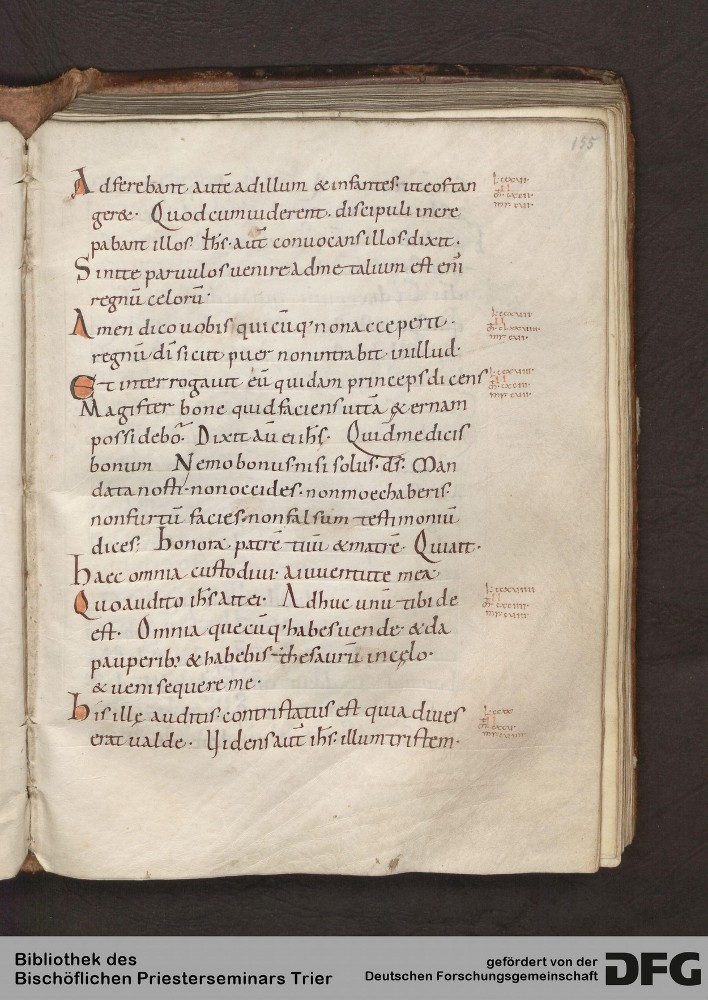 155
Adferebant autē adillum &infantes· uteostan
ger&· Quodcumuiderent· discipuli incre
pabant illos· ihs· aut̄ conuocansillos·dixit·
Sinite paruulosuenireadme talium est enī
regnū celorū·
Amen dicouobis quicūq·nonacceperit·
regnū dī sicut puer nonintrabit inillud·
Et interrogauit eū quidam princepsdicens
Magister bone quidfaciensuitā &ernam
possidebo· Dixit aū ei ihs· Quidmedicis
bonum Nemobonusnisi solus·ds· Man
datanosti·nonoccides·nonmoechaberis·
nonfurtū facies·nonfalsum testimoniū
dices· honora patrē tuū &matrē· Quiait·
haec omnia custodiui· aiuuentute mea
Quoaudito ihsaitei· Adhuc unū tibi de
est· Omnia quecūq·habesuende·&da
pauperib; &habebis thesaurū incęlo·
&uenisequereme·
hisillę auditis·contristatus est quia diues
erat ualde· Uidensaut̄ ihs·illumtristem·
Bibliothek des
Bischöflichen Priesterseminars Trier
gefördert von der
Deutschen Forschungsgemeinschaft
DFG